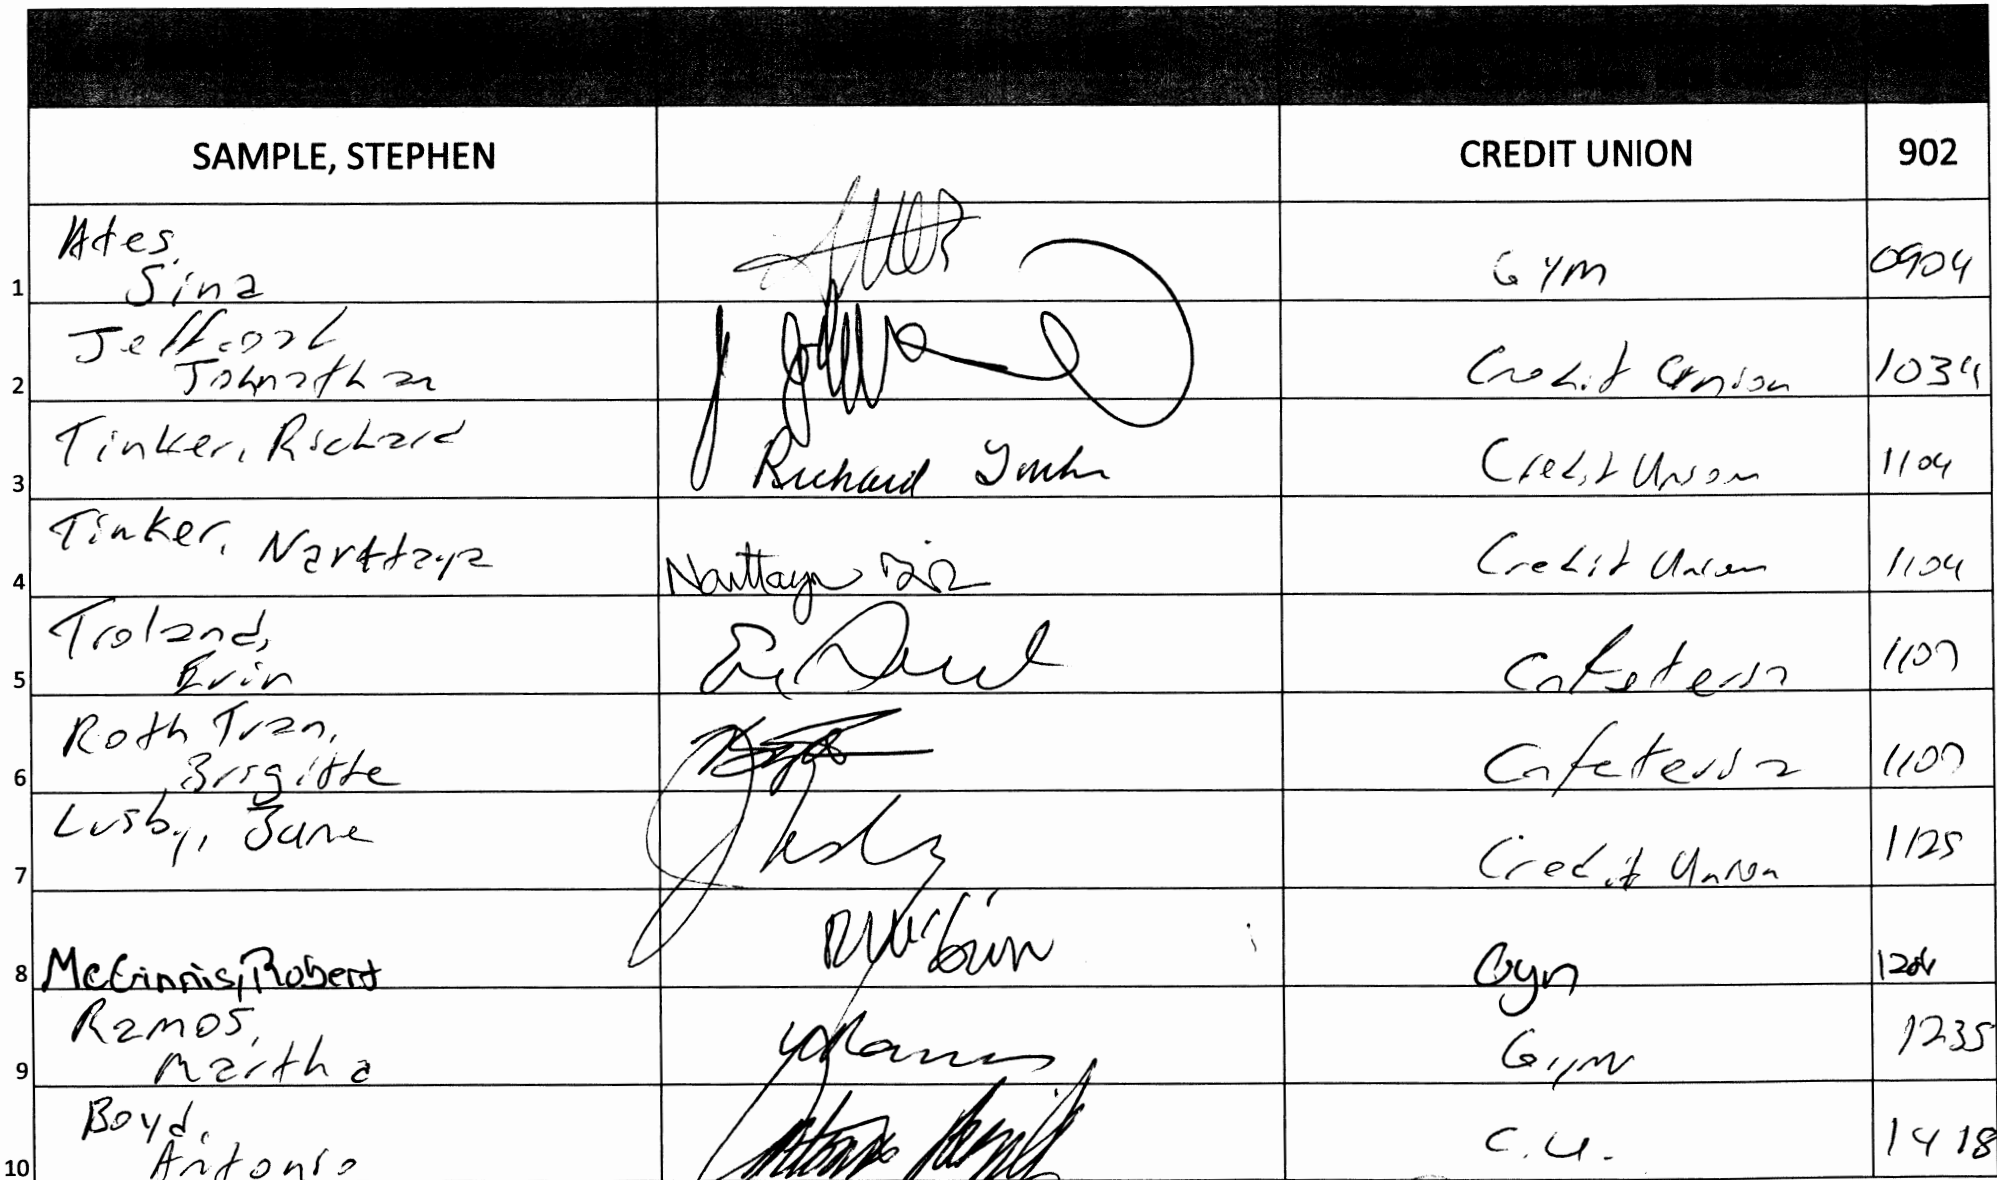 SAMPLE, STEPHEN CREDIT UNION 902
Ates,
Sina Gym 0904
1
Jeffcoat
Johnathan Credit Union 1034
2
Tinker, Richard Richard Credit Union 1104
3
Tinker, Narttaya Narttaya Credit Union 1104
4
Troland,
Erin Cafeteria 1107
5
Roth Tran,
Brigitte Cafeteria 1107
6
Lusby, June Credit Union 1125
7
McGinnis, Robert Gym
8
Ramos,
Martha Gym 1235
9
Boyd,
Antonio C.U. 1418
10